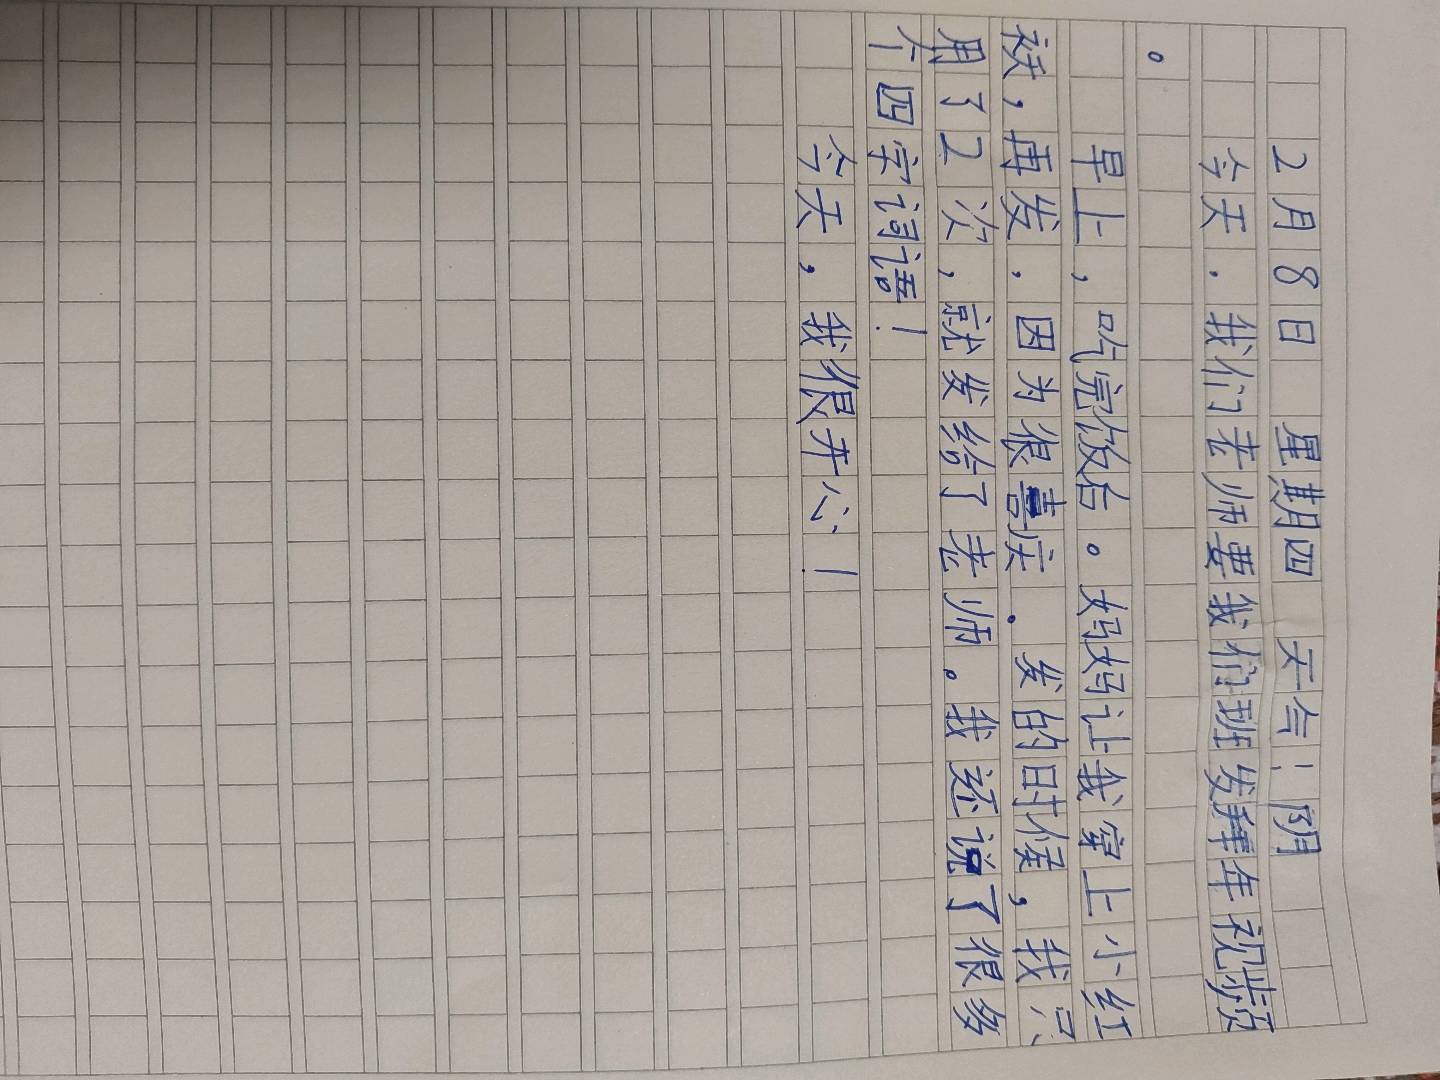 2月8日 星期四 天气：阴
今天，我们老师要我们班发拜年视频
。
早上，吃完饭后。妈妈让我穿上小红
袄，再发，因为很喜庆．发的时候，我只
用了2次，就发给了老师。我还说了很多
个四字词语！
今天，我很开心！